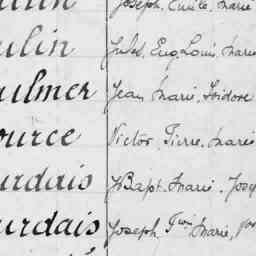 Joseph, Emile, Marie
ulin Jules, Eug, Louis, Marie
ulmer Jean Marie, Isidore
ource Victor, Pierre, Marie
urdais JBapt. Marie, Jose
urdais Joseph, Marie,